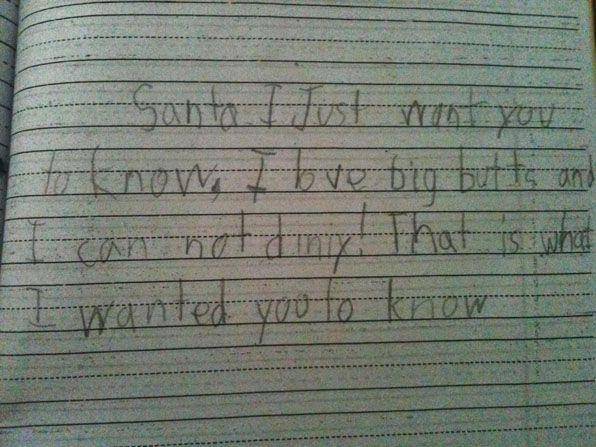 Santa I Just want you
to know, I love big butts and
I can not diniy! That is what
I wanted you to know